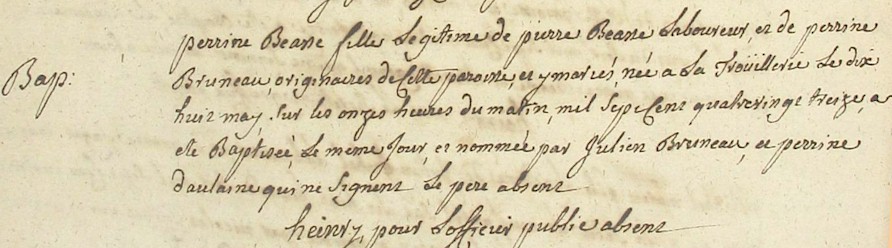 perrine Beasse fille Legitime de pierre Beasse Laboureur, et de perrine
Bap: Bruneau, originaires de Cette paroisse, et y mariés, née a La Troüillerie Le dix
huit may, sur les onzes heures du matin, mil Sept Cent quatrevingt treize, a
ete Baptiseé, Le meme Jour, et nommée par Julien Bruneau, et perrine
daulaine qui ne Signent Le pere absent
heinry, pour Lofficier public absent